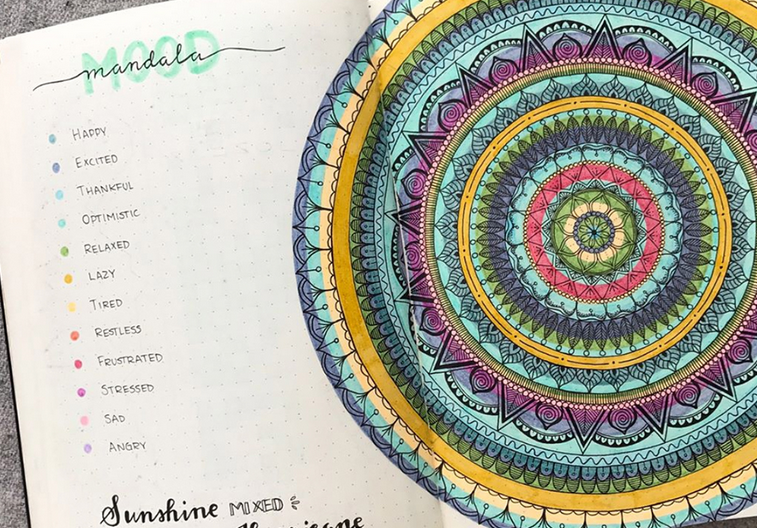 MOOD
mandala
HAPPY
EXCITED
THANKFUL
OPTIMISTIC
RELAXED
LAZY
TIRED
RESTLESS
FRUSTRATED
STRESSED
SAD
ANGRY
Sunshine MIXED
Hurricane